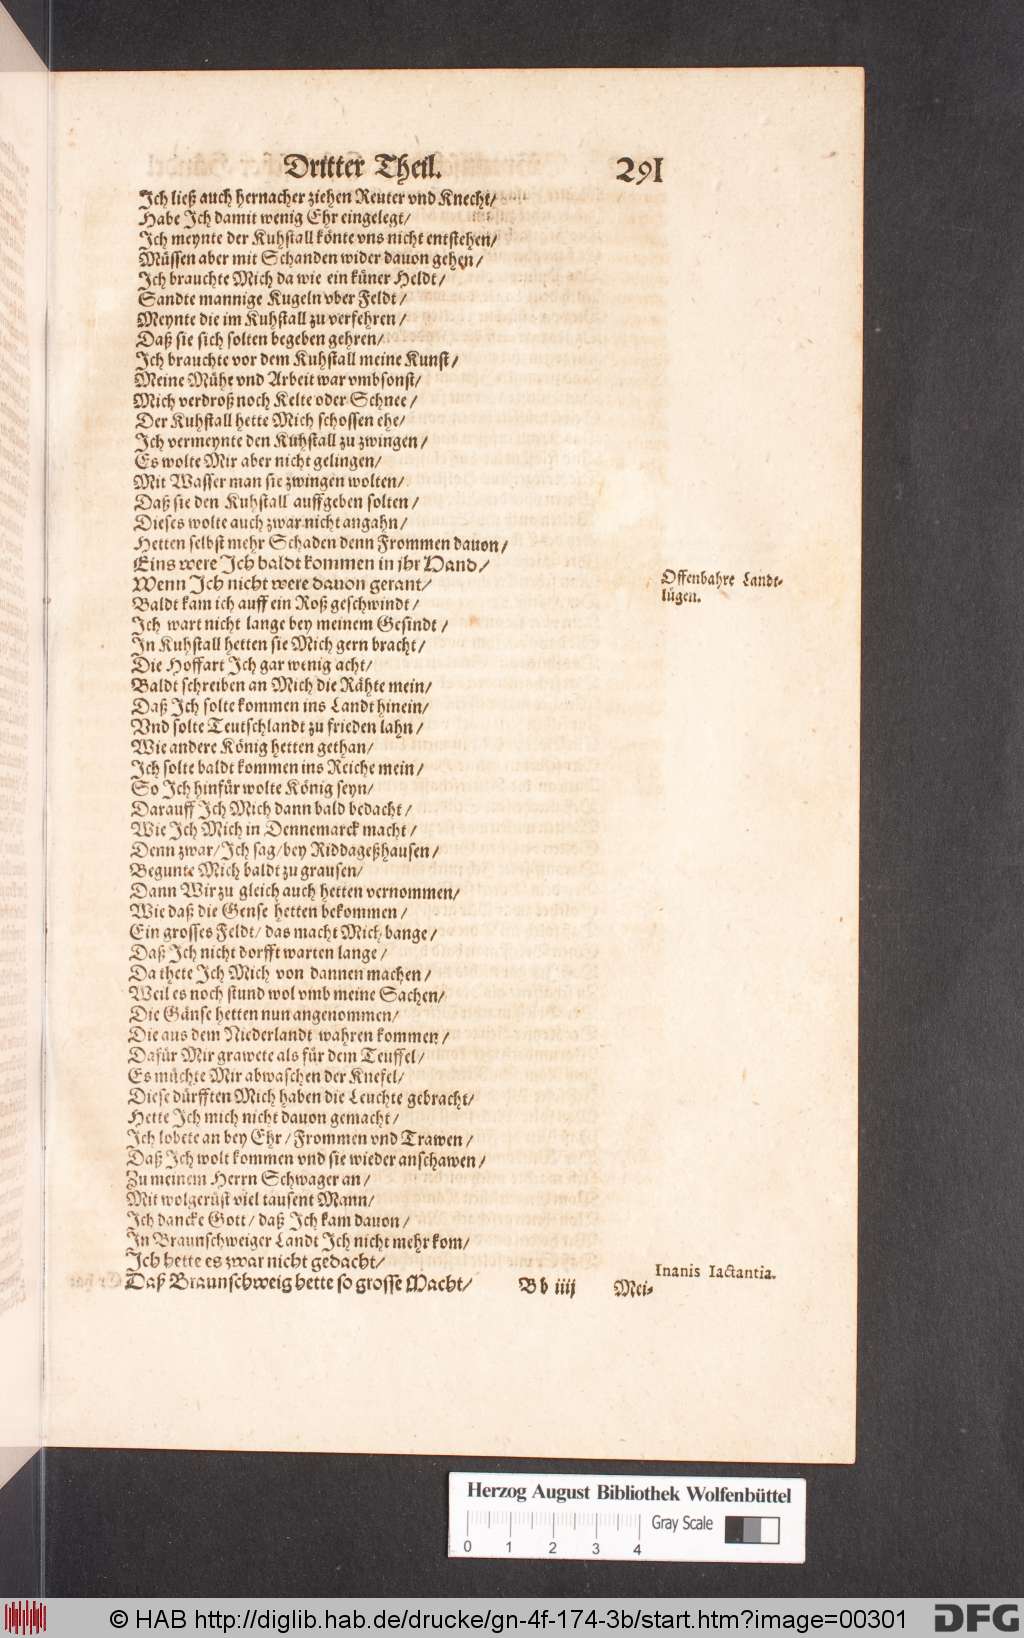 Dritter Theil. 291
Ich ließ auch hernacher ziehen Reuter vnd Knecht/
Habe Ich damit wenig Ehr eingelegt/
Ich meynte der Kuhstall könte vns nicht entstehen/
Müssen aber mit Schanden wider dauon gehen/
Ich brauchte Mich da wie ein küner Heldt/
Sandte mannige Kugeln vber Feldt/
Meynte die im Kuhstall zu verfehren/
Daß sie sich solten begeben gehren/
Ich brauchte vor dem Kuhstall meine Kunst/
Meine Mühe vnd Arbeit war vmbsonst/
Mich verdroß noch Kelte oder Schnee/
Der Kuhstall hette Mich schossen ehe/
Ich vermeynte den Kuhstall zu zwingen/
Es wolte Mir aber nicht gelingen/
Mit Wasser man sie zwingen wolten/
Daß sie den Kuhstall auffgeben solten/
Dieses wolte auch zwar nicht angahn/
Hetten selbst mehr Schaden denn Frommen dauon/
Eins were Ich baldt kommen in jhr Hand/
Wenn Ich nicht were dauon gerant/
Offenbahre Landt-
lügen.
Baldt kam ich auff ein Roß geschwindt/
Ich wart nicht lange bey meinem Gesindt/
In Kuhstall hetten sie Mich gern bracht/
Die Hoffart Ich gar wenig acht/
Baldt schreiben an Mich die Rähte mein/
Daß Ich solte kommen ins Landt hinein/
Vnd solte Teutschlandt zu frieden lahn/
Wie andere König hetten gethan/
Ich solte baldt kommen ins Reiche mein/
So Ich hinfür wolte König seyn/
Darauff Ich Mich dann bald bedacht/
Wie Ich Mich in Dennemarck macht/
Denn zwar/ Ich sag/ bey Riddageßhausen/
Begunte Mich baldt zu grausen/
Dann Wir zu gleich auch hetten vernommen/
Wie daß die Gense hetten bekommen/
Ein grosses Feldt/ das macht Mich bange/
Daß Ich nicht dorfft warten lange/
Da thete Ich Mich von dannen machen/
Weil es noch stund wol vmb meine Sachen/
Die Gänse hetten nun angenommen/
Die aus dem Niederlandt wahren kommen/
Dafür Mir grawete als für dem Teuffel/
Es müchte Mir abwaschen der Knefel/
Diese dürfften Mich haben die Leuchte gebracht/
Hette Ich mich nicht dauon gemacht/
Ich lobete an bey Ehr/ Frommen vnd Trawen/
Daß Ich wolt kommen vnd sie wieder anschawen/
Zu meinem Herrn Schwager an/
Mit wolgerüst viel tausent Mann/
Ich dancke Gott/ daß Ich kam dauon/
In Braunschweiger Landt Ich nicht mehr kom/
Ich hette es zwar nicht gedacht/
Inanis Iactantia.
Daß Braunschweig hette so grosse Macht/
Bb iiij Mei-
Herzog August Bibliothek Wolfenbüttel
Gray Scale
0 1 2 3 4
© HAB http://diglib.hab.de/drucke/gn-4f-174-3b/start.htm?image=00301
DFG